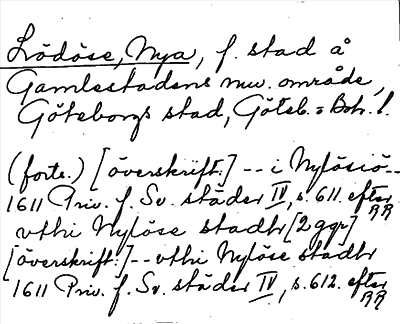 Lödöse, Nya, f. stad å
Gamlestadens nuv. område,
Göteborgs stad, Göteb. o Boh. l.
(forts.) [överskrift:] -- i Nylösiö--
1611 Priv. f. Sv. städer IV, s. 611. efter RA
vthi Nylöse stadhr [2 ggr]
[överskrift:] -- vthi Nylöse stadhr
1611 Priv. f. Sv. städer IV, s. 612. efter RA